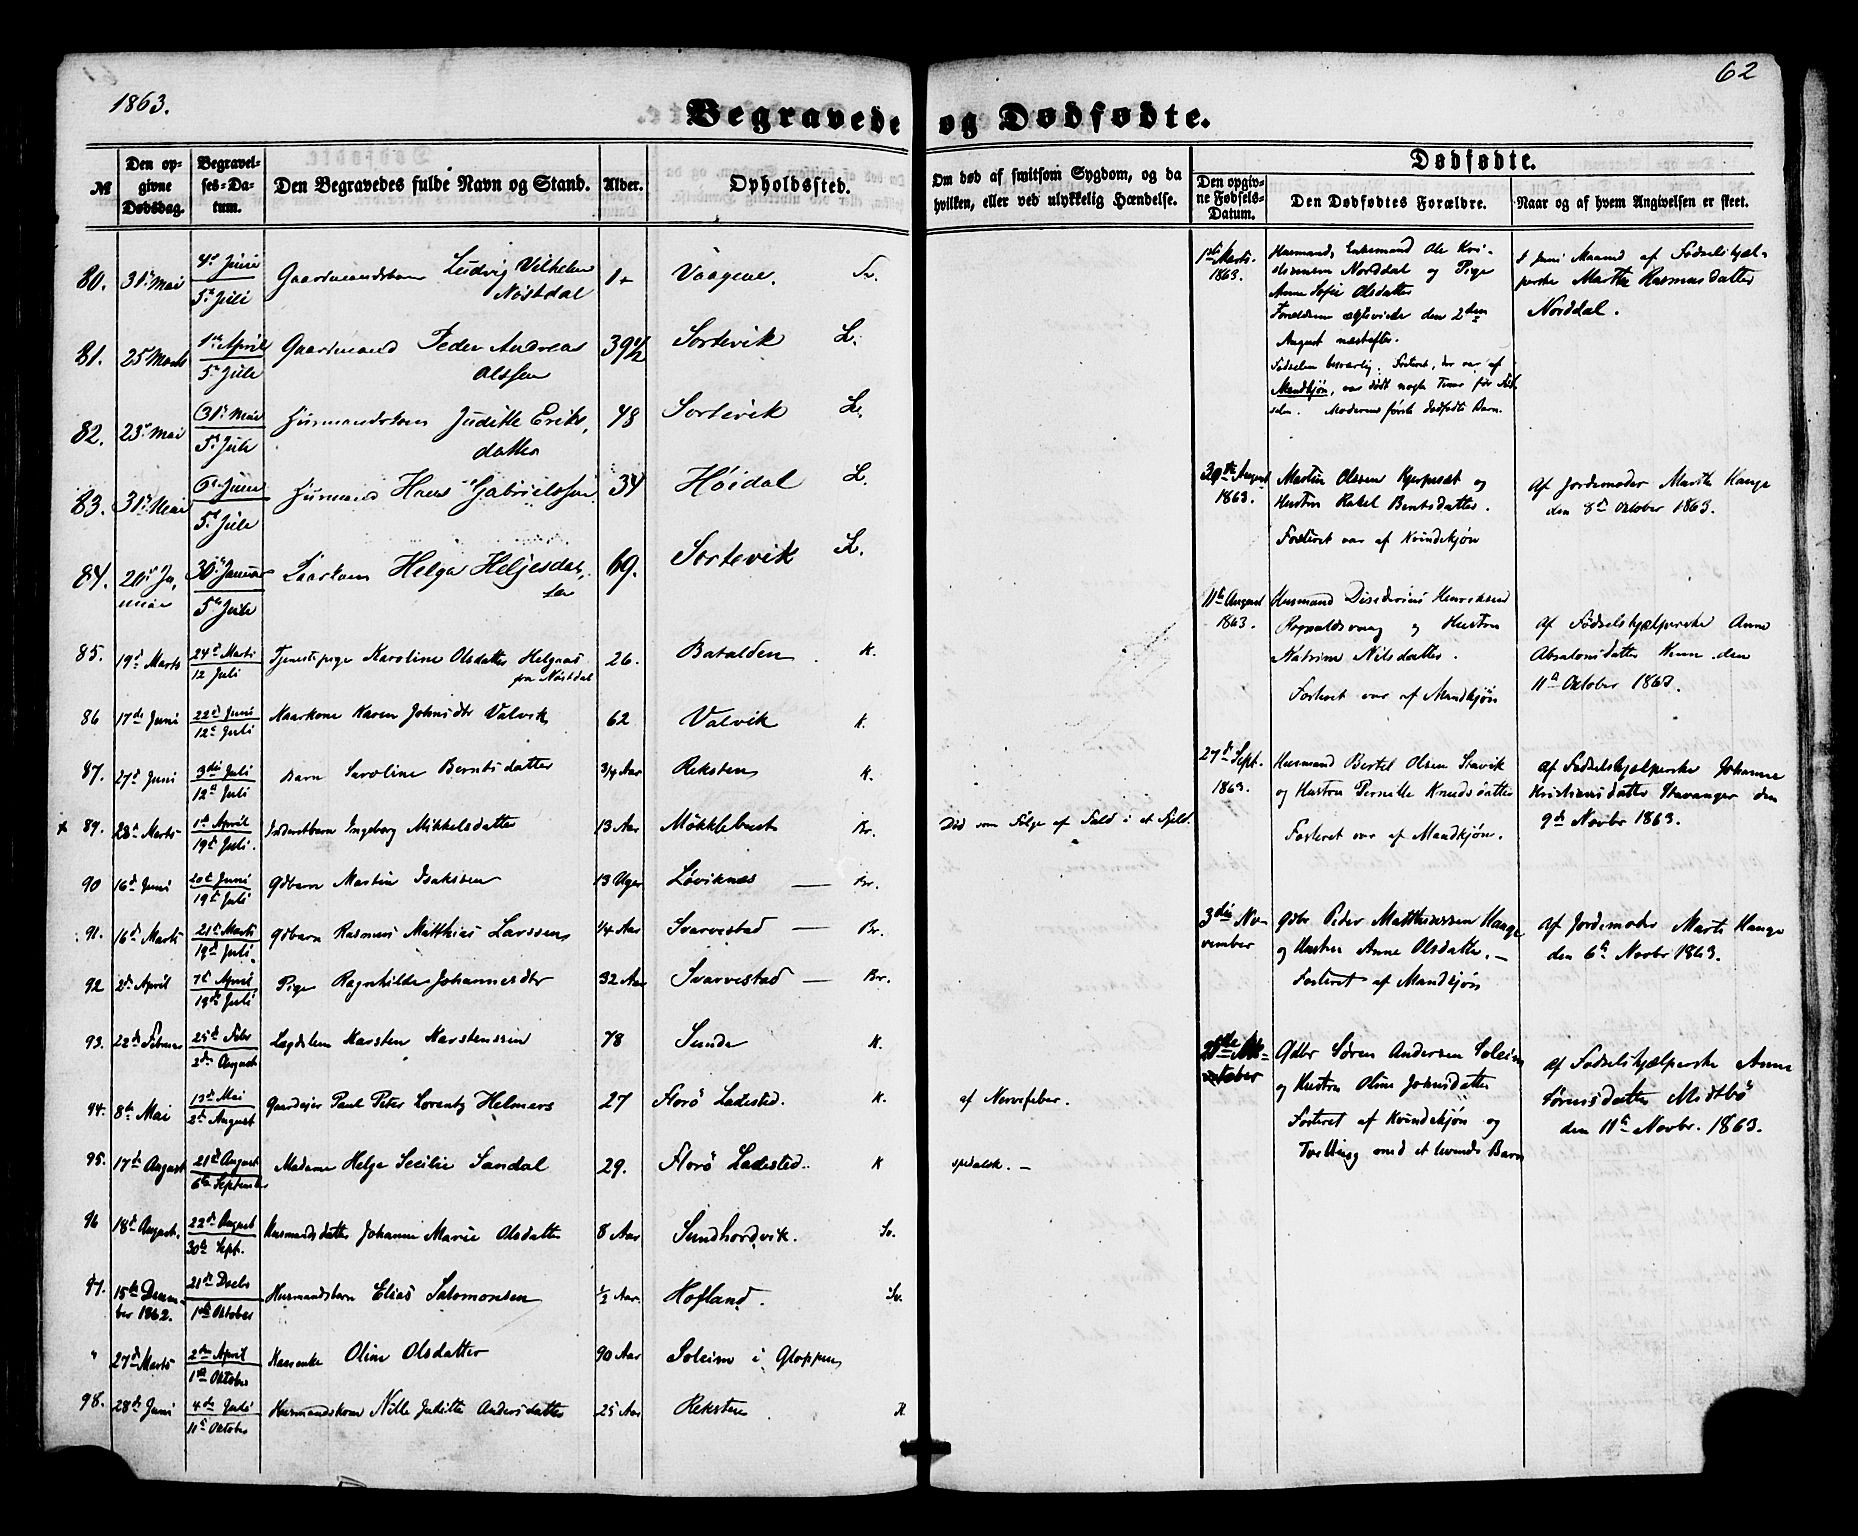 1863.
62
Begravede og Dødfødte.
№
Den opgivne Dødsdag.
Begravelses-Datum.
Den Begravedes fulde Navn og Stand.
Alder.
Opholdssted.
Om død af smitsom Sygdom, og da hvilken, eller ved ulykkelig Hændelse.
Dødfødte.
Den opgivne Fødsels-Datum.
Den Dødfødtes Forældre.
Naar og af hvem Angivelsen er skeet.
80. 31te Mai 4de Juni 5te Juli Gaardmandsbarn Ludvig Vilhelm Nøstdal 1 Vaagene.
81. 25 Marts 1ste April 5te Jule Gaardmand Peder Andreas Olssen 39 1/2 Sortevik L.
82. 23de Mai 31te Mai 5te Jule Husmandskone Judithe Eriksdatter 48 Sortevik L.
83. 31te Mai 6te Juni 5te Jule Husmand Hans Gabrielssen 34 Høidal L.
84. 20de Januar 30te Januar 5te Jule Kaarkone Helga Heljesdatter 69. Sortevik L.
85. 19de Marts 24de Marts 12 Juli Tjenestepige Karoline Olsdatter Helgaas fra Nøstdal 26. Batalden K.
86 17de Juni 22de Juni 12te Juli Kaarkone Karen Johnsdtr Valvik 62 Valvik K.
87. 27de Juni 3die Juli 12te Juli Barn Karoline Berntsdatter 3/4 Aar Reksten K.
x 89. 28de Marts 1ste April 19de Juli. Inderstbarn Ingeborg Mikkelsdatter 13 Aar Møkklebust Br. Død som Følge af Fald i et Fjeld.
90 16de Juni 20de Juni 19de Juli Gdbarn Martin Isaksen 13 Uger Løviknæs — Br.
91. 16de Marts 21de Marts 19de Juli. Gdbarn Rasmus Matthias Larssen 1/4 Aar Svarvestad — Br.
92 2den April 7de April 19de Juli Pige Ragnhilde Johannesdtr 32 Aar Svarvestad — Br.
93. 22de Februar 25de Febr 2den August Lægdslem Karsten Karstenssen 78 Sunde K.
94. 8de Mai 13de Mai 2den August Gaardejer Paul Peter Lorentz Helmers 27 Florø Ladested. K. af Nervefeber.
95. 17de August 21de August 6te September Madame Helge Secilie Sandal 29. Florø Ladested. K spedalsk. —
96 18de August. 22de August 30te Sept. Husmandsdatter Johanne Marie Olsdatter 8 Aar Sundhordvik. Sv.
97. 15de December 1862. 21de Decbr 1ste Oktober Husmandsbarn Elias Salomonsen 1/2 Aar Hofland. Sv.
" 27de Marts 2den April 1ste Oktober Oline Olsdatter 90 Aar Soleim i Gloppen
98. 28de Juni 4de Juli 11te Oktober Husmandskone Nille Juditte Andersdatter 25 Aar Reksten K.
1ste Marts. 1863. Husmand, Enkemand Ole Kristensen Norddal og Pige
Anne Sofie Olsdatter
Forældrene ægteviede den 2den August næstefter.
Fødselen besværlig. Fosteret, der var af
Mandkjøn, var dødt nogle Timer før Fødselen. Moderens første dødfødte Barn.
I Juni Maaned af Fødselshjælperske Marthe Rasmusdatter Norddal.
30te August 1863. Martin Olssen Kjerpeset og
Hustru Rakel Berntsdatter.
Fosteret var af Kvindekjøn
Af Jordemoder Marthe Hauge
den 8de Oktober 1863.
11te August 1863. Husmand Disiderius Henriksen
Rognaldsvaag og Hustru
Katrine Nilsdatter.
Fosteret var af Mandkjøn
Af Fødselshjælperske Anne
Absalonsdatter Kinn den
11te Oktober 1863.
27de Sept. 1863. Husmand Bertel Olsen Stavik
og Hustru Pernille Knudsdatter
Fosteret var af Mandkjøn.
Af Fødselshjælperske Johanne
Kristiansdatter Stavanger den
9de Novbr 1863.
3die November Gdbr. Peder Matthiassen Hauge
og Hustru Anne Olsdatter. —
Fosteret af Mandkjøn
Af Jordemoder Marte Hauge
den 6te Novbr 1863.
Oktober Gdbr Søren Andersen Soleim
og Hustru Oline Johnsdatter
Fosteret af Kvindekjøn og
Tvilling med et levende Barn
Af Fødselshjælperske Anne
Sørensdatter Midtbø
den 11te Novbr. 1863.